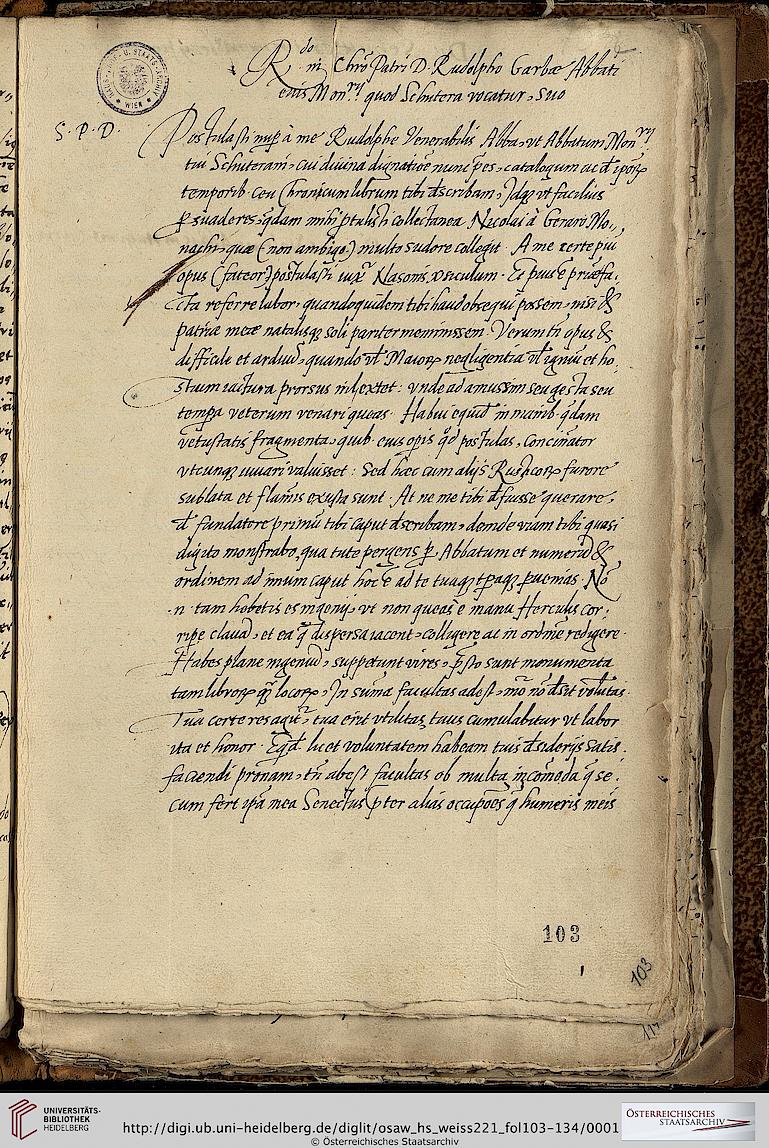 R.do in Chrõ Patri D. Rudolpho Garbæ Abbati
eius Mon.rij quod Schutera vocatur, suo
HAUS-, HOF- U. STAATS-ARCHIV
WIEN
S. P. D.
Postulasti nup à me Rudolphe Venerabilis Abba, ut Abbatum Mon.rij
tui Schuteran, cui divina dignatiõe nunc p̃es, catalogum ac
temporib. ceu Chronicum librum tibi describam, Idq ut facilius
p̱suaderes, q̃dam mihi p̃tulisti collectanea Nicolai à Geraro Mo,,
nachi, quæ (non ambigo) multo sudore collegit. A me certe piũ
opus (fateor) postulasti iuxta Nasonis versiculum. Et pius e præfa,
cta referre labor, quandoquidem tibi haud obsequi possem, nisi &
patriæ meæ natalisq soli pariter meminissem. Verum tñ opus &
difficile et arduũ, quando vl Maiorꝝ negligentia vl igniũ et ho,
stium iactura prorsus nil extet: unde ad amussim seu gesta seu
tempa veterum venari queas. Habui equid in manib. q̃dam
vetustatis fragmenta, quib. eius opis q̃d postulas, concinator
utcunq iuvari valuisset: Sed hæc cum alijs Rusticorꝝ furore
sublata et flamis exusta sunt. At ne me tibi defuisse querare,
fundatore primũ tibi caput describam, deinde viam tibi quasi
digito monstrabo, qua tute pergens p̱ Abbatum et numerũ &
ordinem ad imum caput hoc ẽ ad te tuaq tpaq p̱venias. No
n tam hebetis es ingenij, ut non queas e manu Herculis cor,
ripe clavã, et ea q̃ dispersa iacent, colligere ac in ordinẽ redigere.
Habes plane ingeniũ, suppetunt vires, p̃sto sunt monumenta
tam librorꝝ q̃ locorꝝ, In suma facultas adest, mõ nõ desit volũtas.
Tua certe res agit, tua erit utilitas, tuus cumulabitur ut labor
ita et honor. Eqd licet voluntatem habeam tuis desiderijs satis,
faciendi pronam, tñ abest facultas ob multa incõmoda q̃ se,
cum fert ipa mea Senectus p̃ter alias occupões q̃ humeris meis
103
103
117
UNIVERSITÄTS-
BIBLIOTHEK
HEIDELBERG
http://digi.ub.uni-heidelberg.de/diglit/osaw_hs_weiss221_fol103-134/0001
© Österreichisches Staatsarchiv
ÖSTERREICHISCHES
STAATSARCHIV